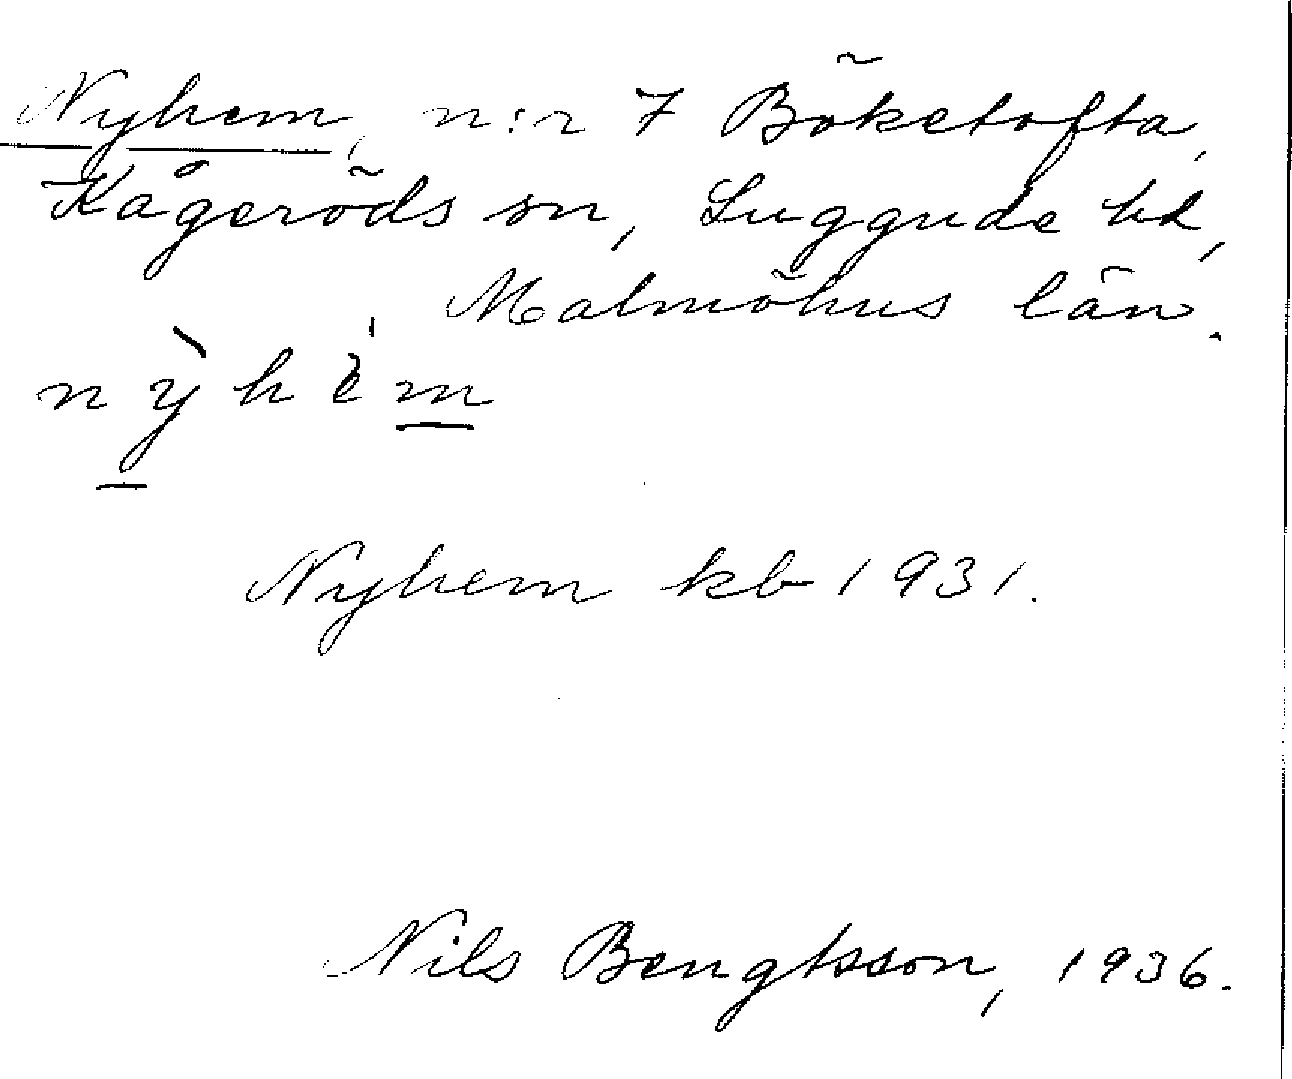 Nyhem, n:r 7 Böketofta,
Kågeröds sn, Luggude hd,
Malmöhus län.
nỳhèm
Nyhem kb 1931.
Nils Bengtsson, 1936.